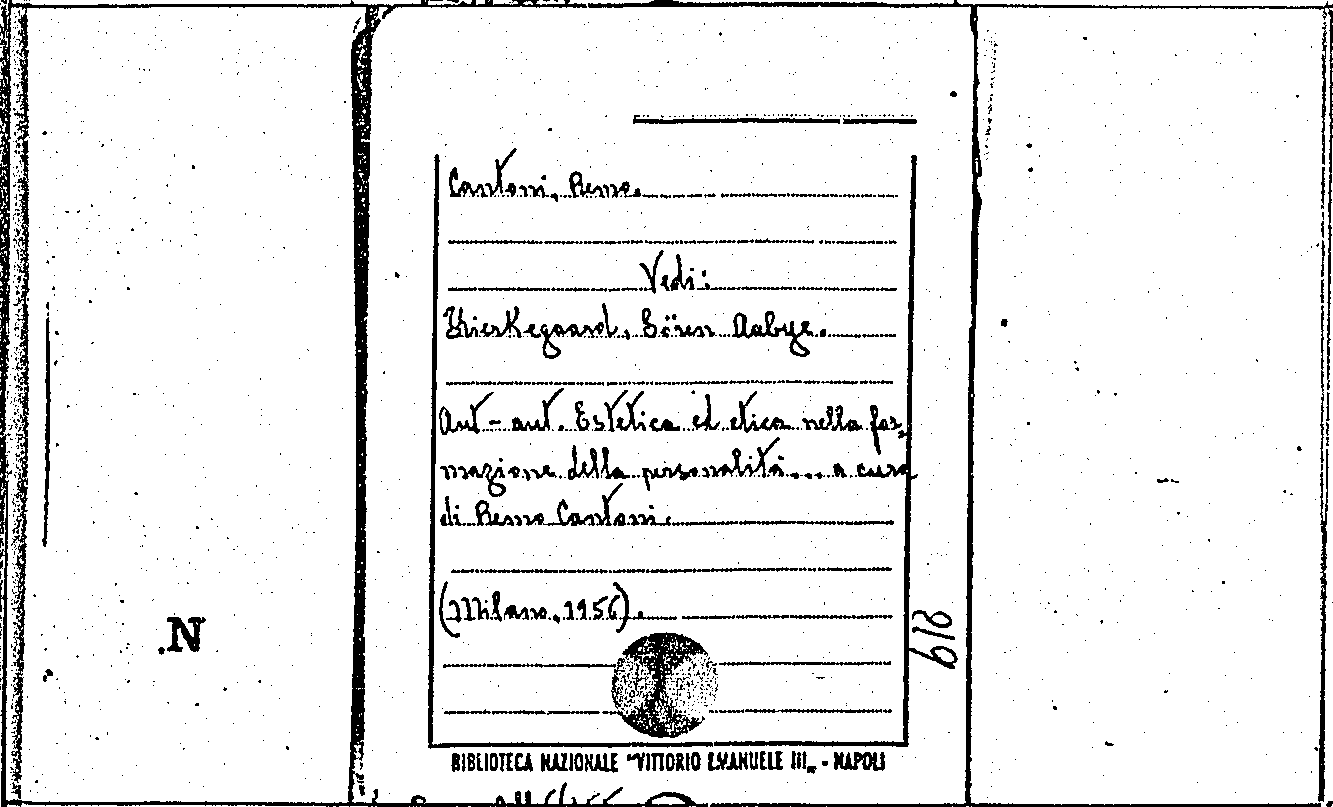 Cantoni, Remo.
Vedi:
Kierkegaard, Sören Aabye.
Aut - aut. Estetica ed etica nella for-
mazione della personalità... a cura
di Remo Cantoni.
(Milano, 1956).
BIBLIOTECA NAZIONALE "VITTORIO EMANUELE III„ - NAPOLI
N.